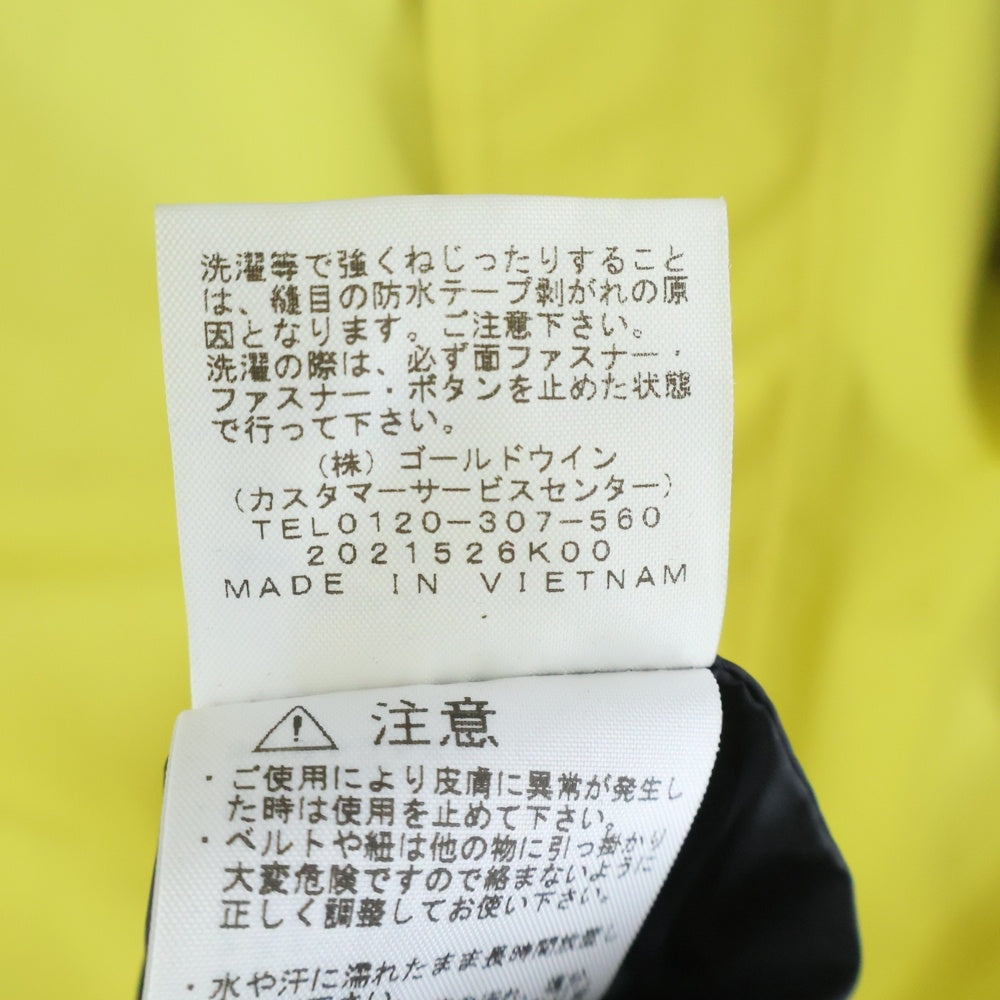 洗濯等で強くねじったりすること
は、縫目の防水テープ剥がれの原
因となります。ご注意下さい。
洗濯の際は、必ず面ファスナー・
ファスナー・ボタンを止めた状態
で行って下さい。
(株)ゴールドウイン
(カスタマーサービスセンター)
TEL0120-307-560
2021526K00
MADE IN VIETNAM
注意
・ご使用により皮膚に異常が発生し
た時は使用を止めて下さい。
・ベルトや紐は他の物に引っ掛かり
大変危険ですので絡まないように
正しく調整してお使い下さい。
・水や汗に濡れたまま長時間放置し